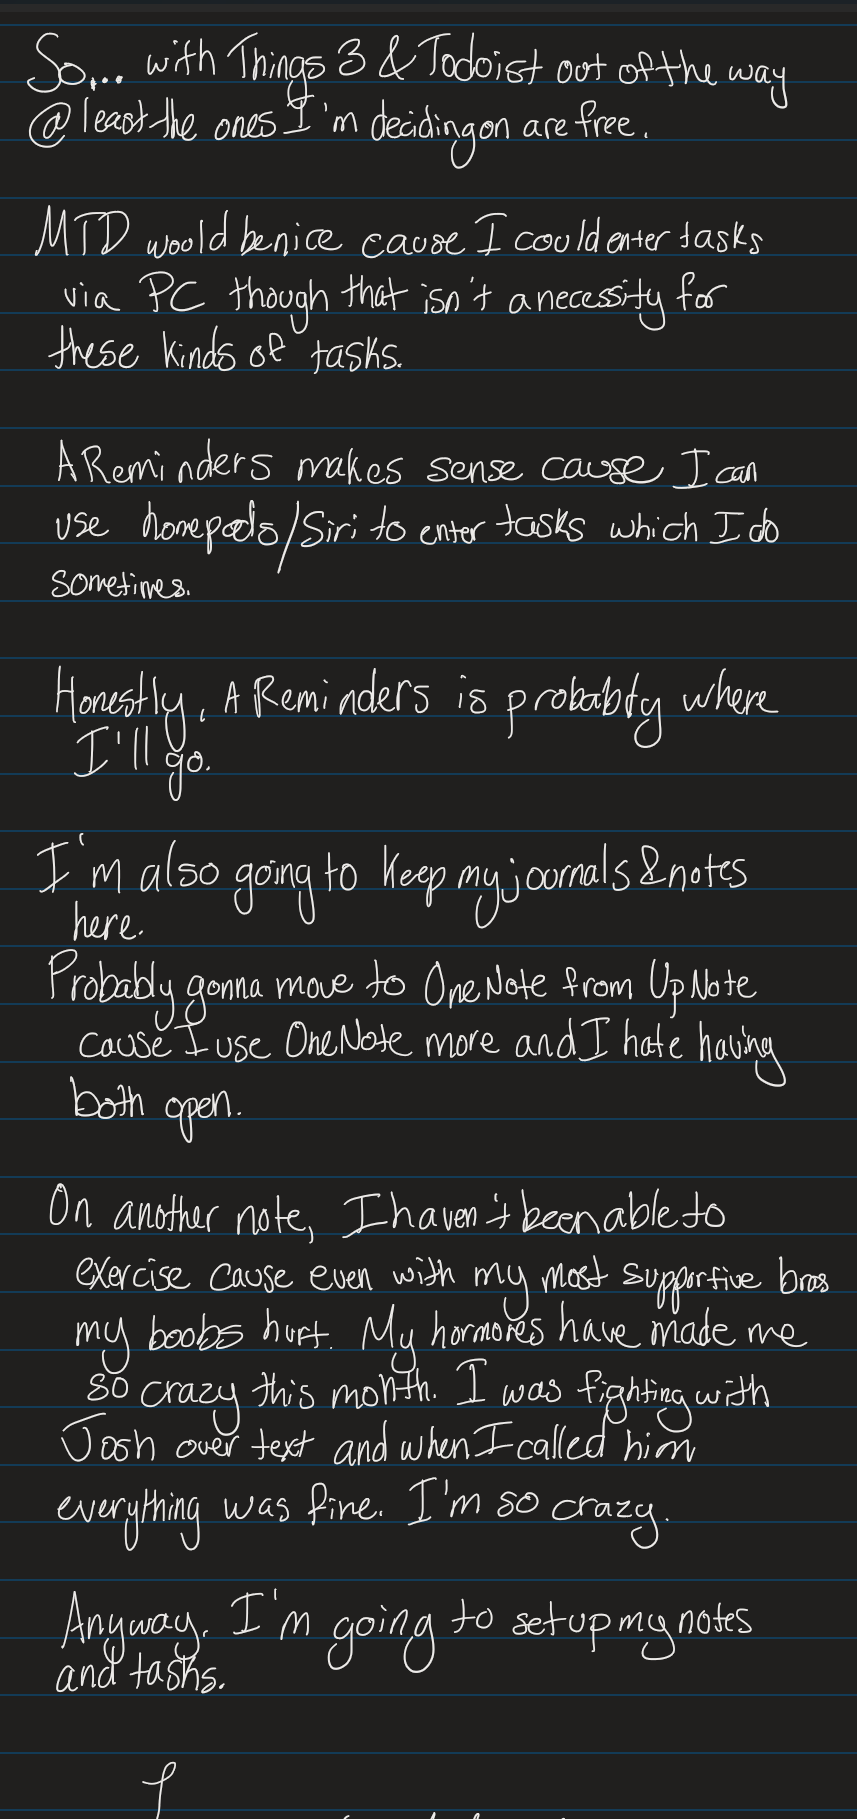 So... with Things 3 & Todoist out of the way
@ least the ones I'm deciding on are free.
MTD would be nice cause I could enter tasks
via PC though that isn't a necessity for
these kinds of tasks.
A Reminders makes sense cause I can
use homepods/Siri to enter tasks which I do
sometimes.
Honestly, A Reminders is probably where
I'll go.
I'm also going to keep my journals & notes
here.
Probably gonna move to OneNote from UpNote
cause I use OneNote more and I hate having
both open.
On another note, I haven't been able to
exercise cause even with my most supportive bras
my boobs hurt. My hormones have made me
so crazy this month. I was fighting with
Josh over text and when I called him
everything was fine. I'm so crazy.
Anyway, I'm going to set up my notes
and tasks.